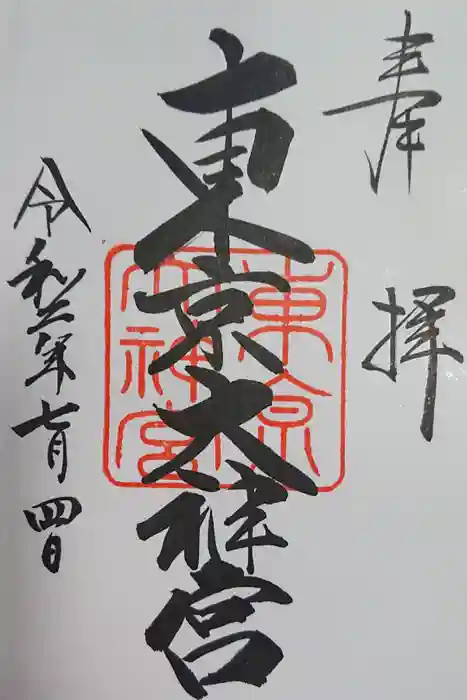 奉拝
東京大神宮
東京
大神宮
令和二年七月四日